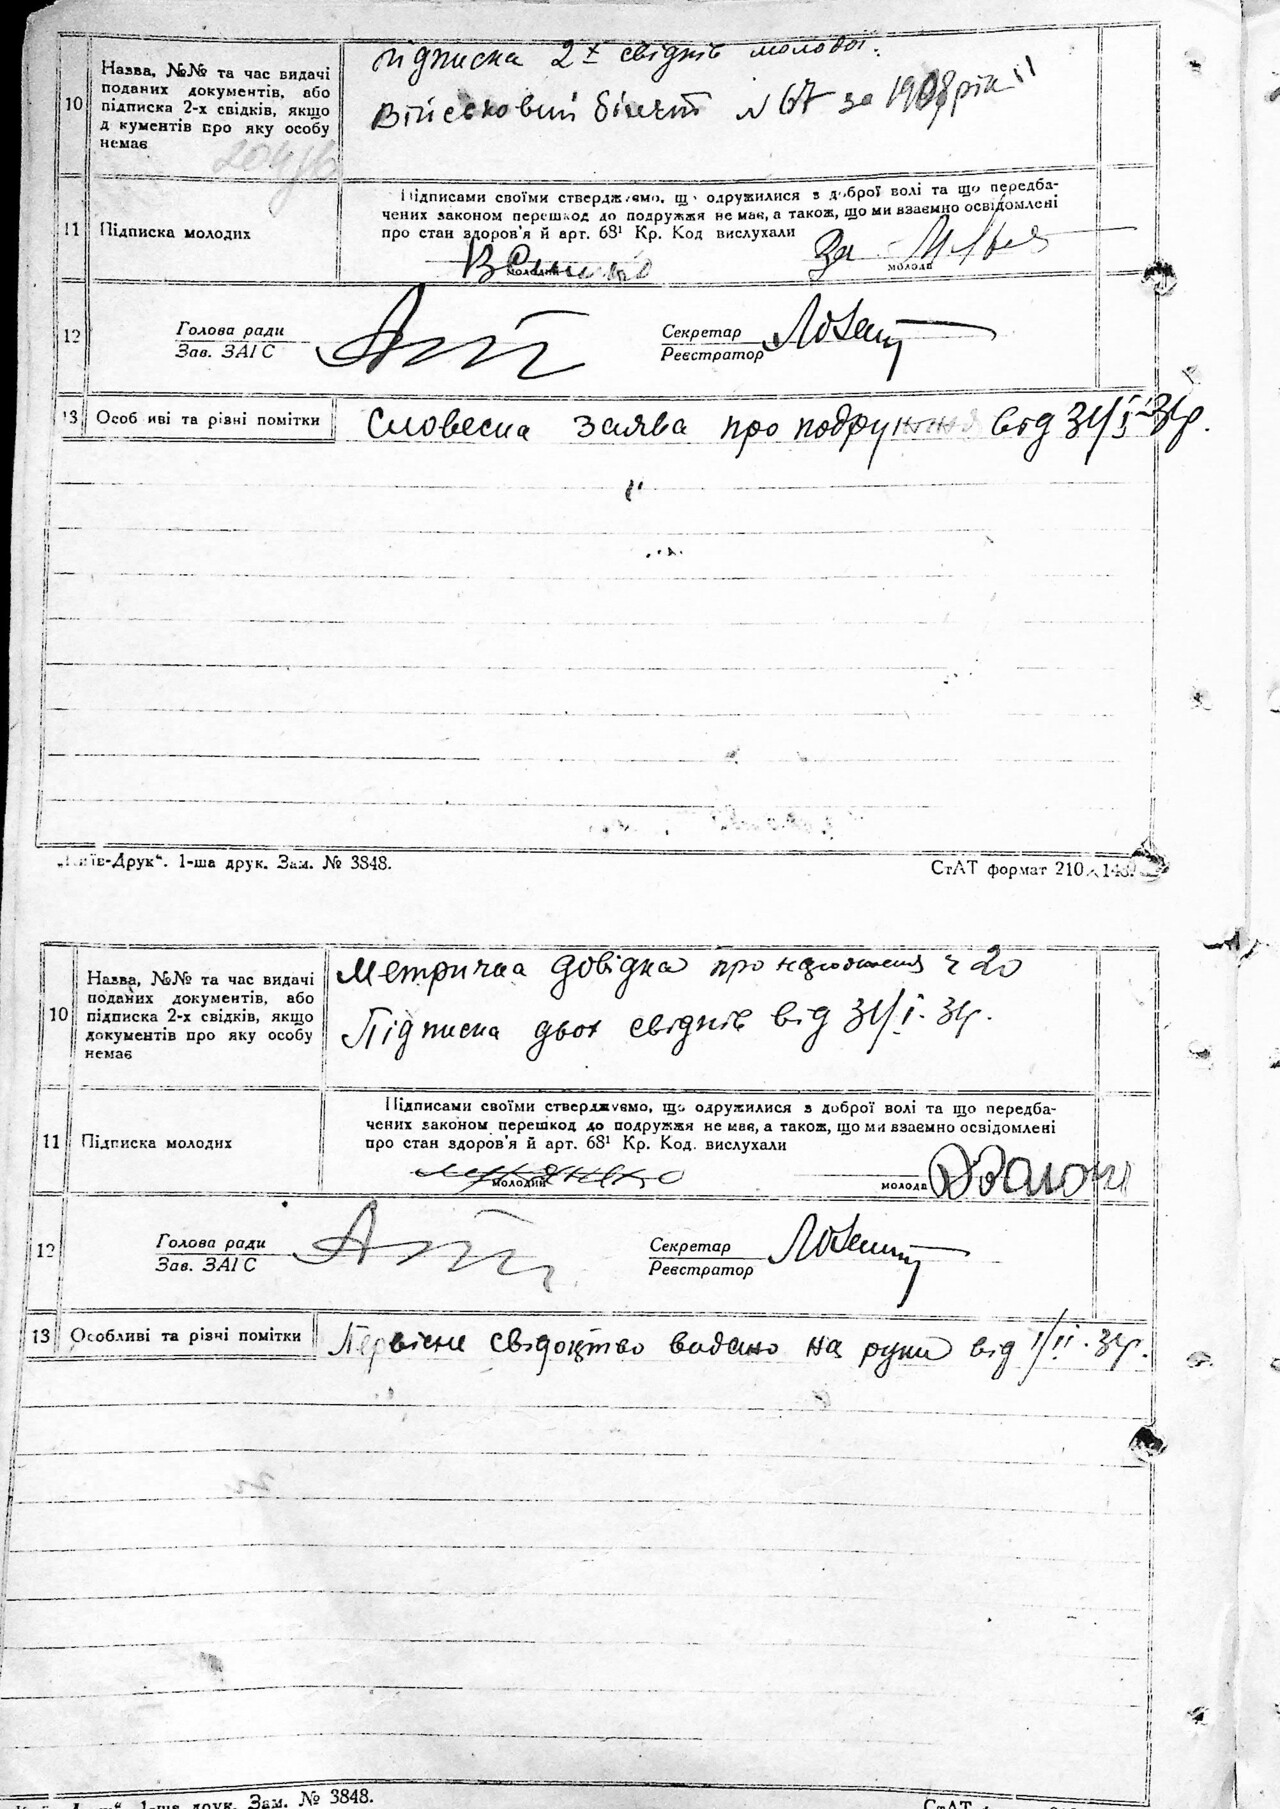 підписка 2х свідків молодої.
10
Назва, №№ та час видачі
поданих документів, або
підписка 2-х свідків, якщо
д кументів про яку особу
немає
Військовий білет N 67 за 1908 рік
11
Підписка молодих
Підписами своїми стверджуємо, що одружилися з доброї волі та що передба-
чених законом перешкод до подружжя не має, а також, що ми взаємно освідомлені
про стан здоров'я й арт. 68¹ Кр. Код вислухали
За
молодий
молода
12
Голова ради
Зав. ЗАГС
Секретар
Реєстратор
13
Особ иві та рівні помітки
Словесна заява про подружжя від 31/I-31р.
„Київ-Друк“. 1-ша друк. Зам. № 3848.
СтАТ формат 210×148.
10
Назва, №№ та час видачі
поданих документів, або
підписка 2-х свідків, якщо
документів про яку особу
немає
Метрична довідка про народження ч 20
Підписка двох свідків від 31/I. 31р.
11
Підписка молодих
Підписами своїми стверджуємо, що одружилися з доброї волі та що передба-
чених законом перешкод до подружжя не має, а також, що ми взаємно освідомлені
про стан здоров'я й арт. 68¹ Кр. Код. вислухали
молодий
молода
12
Голова ради
Зав. ЗАГС
Секретар
Реєстратор
13
Особливі та різні помітки
Первісне свідоцтво видано на руки від 1/II. 31р.
1-ша друк. Зам. № 3848.
СтАТ